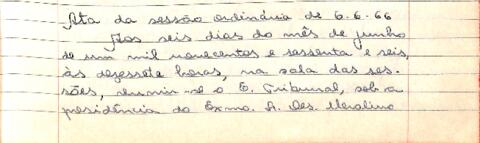 Ata da sessão ordinária de 6.6.66
Aos seis dias do mês de junho
de um mil novecentos e sessenta e seis,
às dezessete horas, na sala das ses-
sões, reuniu-se o E. Tribunal, sob a
presidência do Exmo. Des.